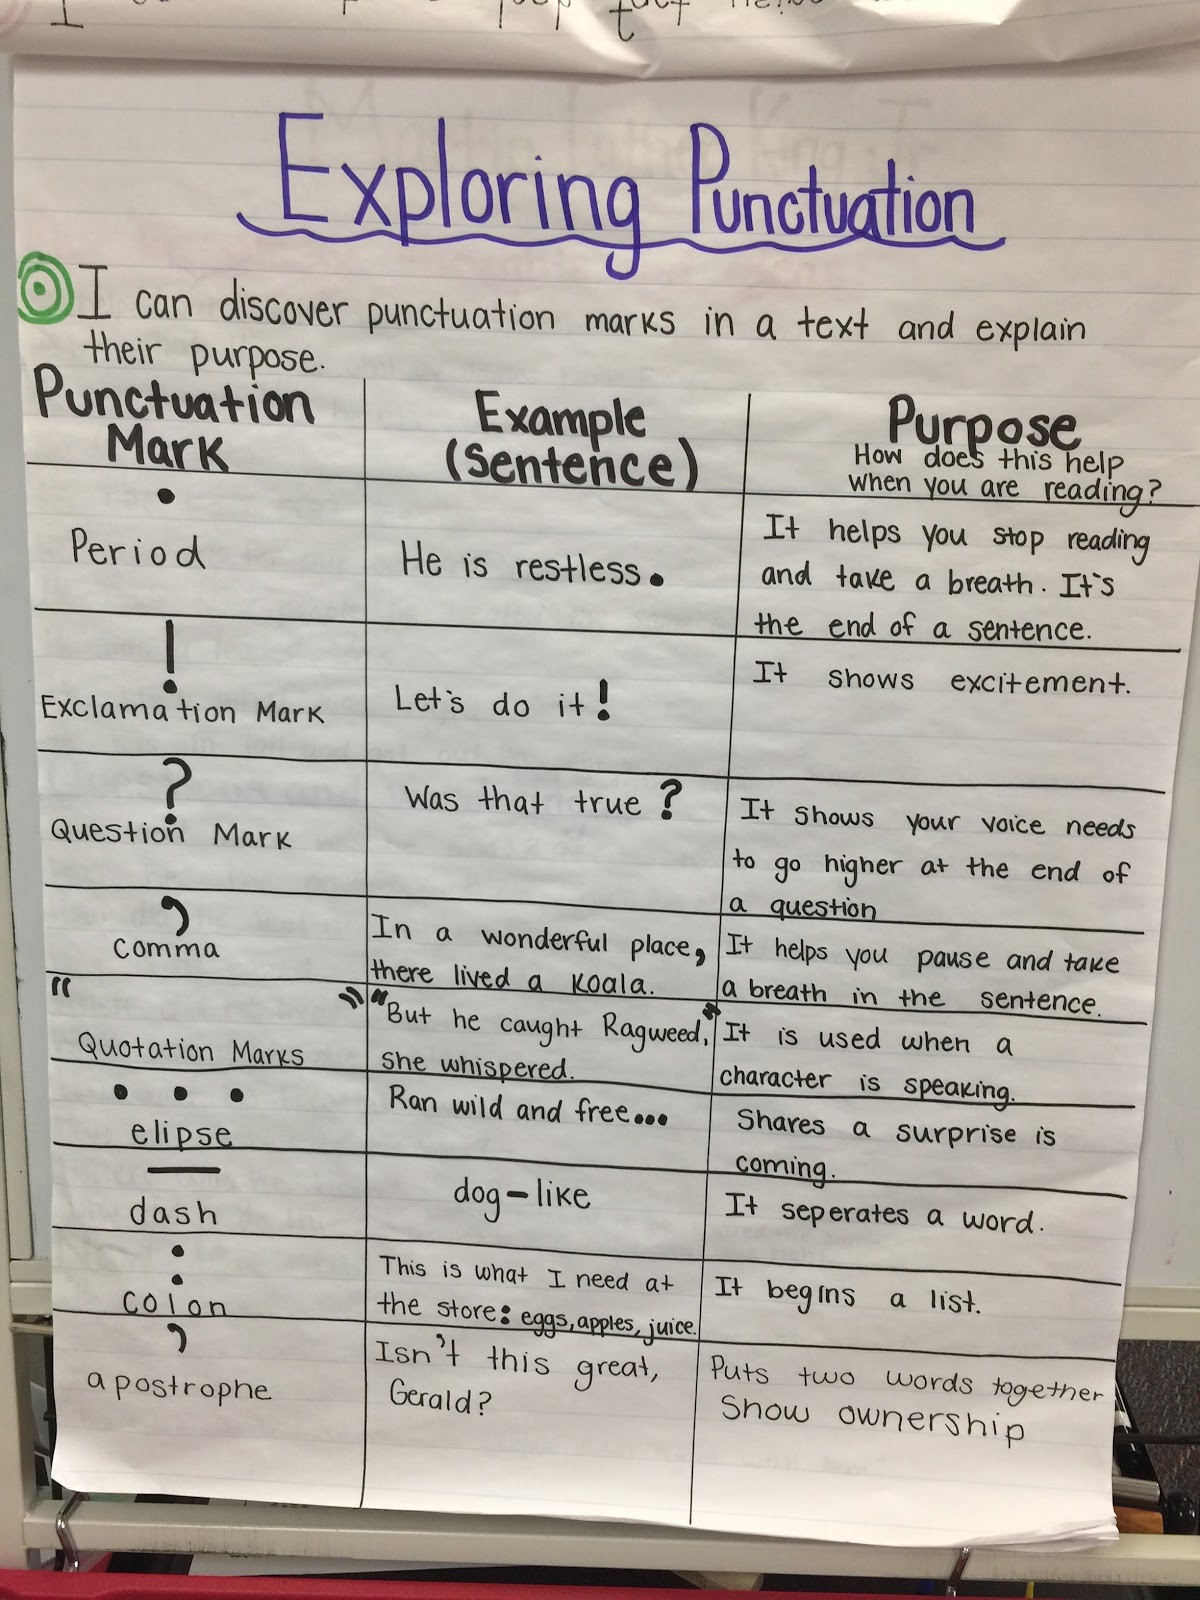 Exploring Punctuation
I can discover punctuation marks in a text and explain
their purpose.
Punctuation
Mark
Example
(Sentence)
Purpose
How does this help
when you are reading?
.
Period
He is restless.
It helps you stop reading
and take a breath. It's
the end of a sentence.
!
Exclamation Mark
Let's do it!
It shows excitement.
?
Question Mark
Was that true?
It shows your voice needs
to go higher at the end of
a question
,
comma
In a wonderful place,
there lived a koala.
It helps you pause and take
a breath in the sentence.
“ ”
Quotation Marks
“But he caught Ragweed,”
she whispered.
It is used when a
character is speaking.
...
elipse
Ran wild and free...
Shares a surprise is
coming.
—
dash
dog-like
It seperates a word.
:
colon
This is what I need at
the store: eggs, apples, juice.
It begins a list.
’
apostrophe
Isn't this great,
Gerald?
Puts two words together
Show ownership